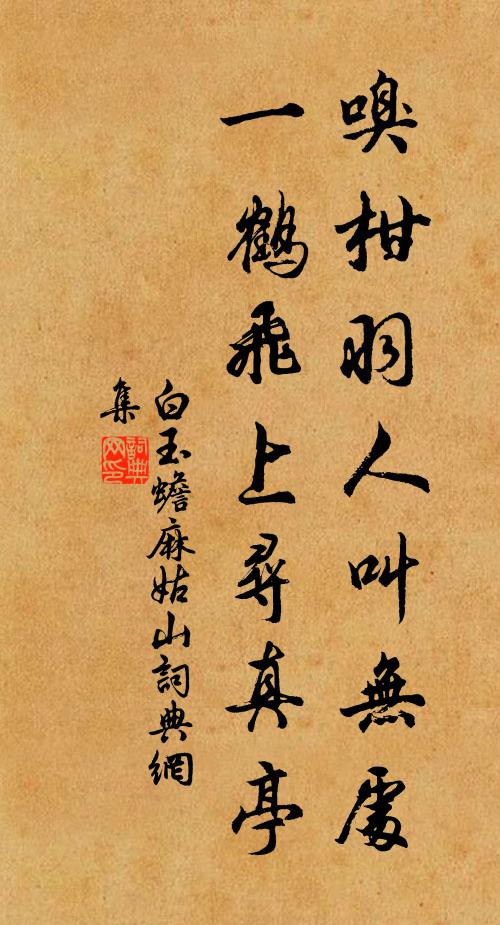 嗅柑羽人叫無處
一鶴飛上尋真亭
白玉蟾麻姑山詞典網
集
詞典網印